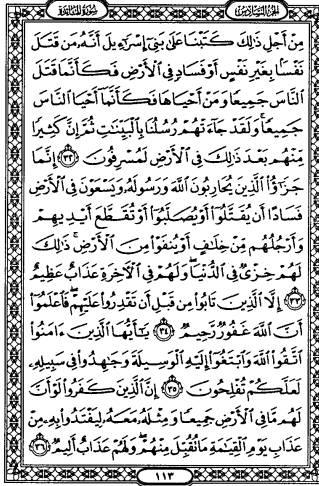 الجزء السادس
سورة المائدة
مِنْ أَجْلِ ذَٰلِكَ كَتَبْنَا عَلَىٰ بَنِىٓ إِسْرَٰٓءِيلَ أَنَّهُۥ مَن قَتَلَ
نَفْسًۢا بِغَيْرِ نَفْسٍ أَوْ فَسَادٍ فِى ٱلْأَرْضِ فَكَأَنَّمَا قَتَلَ
ٱلنَّاسَ جَمِيعًا وَمَنْ أَحْيَاهَا فَكَأَنَّمَآ أَحْيَا ٱلنَّاسَ
جَمِيعًا ۚ وَلَقَدْ جَآءَتْهُمْ رُسُلُنَا بِٱلْبَيِّنَٰتِ ثُمَّ إِنَّ كَثِيرًا
مِّنْهُم بَعْدَ ذَٰلِكَ فِى ٱلْأَرْضِ لَمُسْرِفُونَ ﴿٣٢﴾ إِنَّمَا
جَزَٰٓؤُا۟ ٱلَّذِينَ يُحَارِبُونَ ٱللَّهَ وَرَسُولَهُۥ وَيَسْعَوْنَ فِى ٱلْأَرْضِ
فَسَادًا أَن يُقَتَّلُوٓا۟ أَوْ يُصَلَّبُوٓا۟ أَوْ تُقَطَّعَ أَيْدِيهِمْ
وَأَرْجُلُهُم مِّنْ خِلَٰفٍ أَوْ يُنفَوْا۟ مِنَ ٱلْأَرْضِ ۚ ذَٰلِكَ
لَهُمْ خِزْىٌ فِى ٱلدُّنْيَا ۖ وَلَهُمْ فِى ٱلْءَاخِرَةِ عَذَابٌ عَظِيمٌ
﴿٣٣﴾ إِلَّا ٱلَّذِينَ تَابُوا۟ مِن قَبْلِ أَن تَقْدِرُوا۟ عَلَيْهِمْ ۖ فَٱعْلَمُوٓا۟
أَنَّ ٱللَّهَ غَفُورٌ رَّحِيمٌ ﴿٣٤﴾ يَٰٓأَيُّهَا ٱلَّذِينَ ءَامَنُوا۟
ٱتَّقُوا۟ ٱللَّهَ وَٱبْتَغُوٓا۟ إِلَيْهِ ٱلْوَسِيلَةَ وَجَٰهِدُوا۟ فِى سَبِيلِهِۦ
لَعَلَّكُمْ تُفْلِحُونَ ﴿٣٥﴾ إِنَّ ٱلَّذِينَ كَفَرُوا۟ لَوْ أَنَّ
لَهُم مَّا فِى ٱلْأَرْضِ جَمِيعًا وَمِثْلَهُۥ مَعَهُۥ لِيَفْتَدُوا۟ بِهِۦ مِنْ
عَذَابِ يَوْمِ ٱلْقِيَٰمَةِ مَا تُقُبِّلَ مِنْهُمْ ۖ وَلَهُمْ عَذَابٌ أَلِيمٌ ﴿٣٦﴾
١١٣